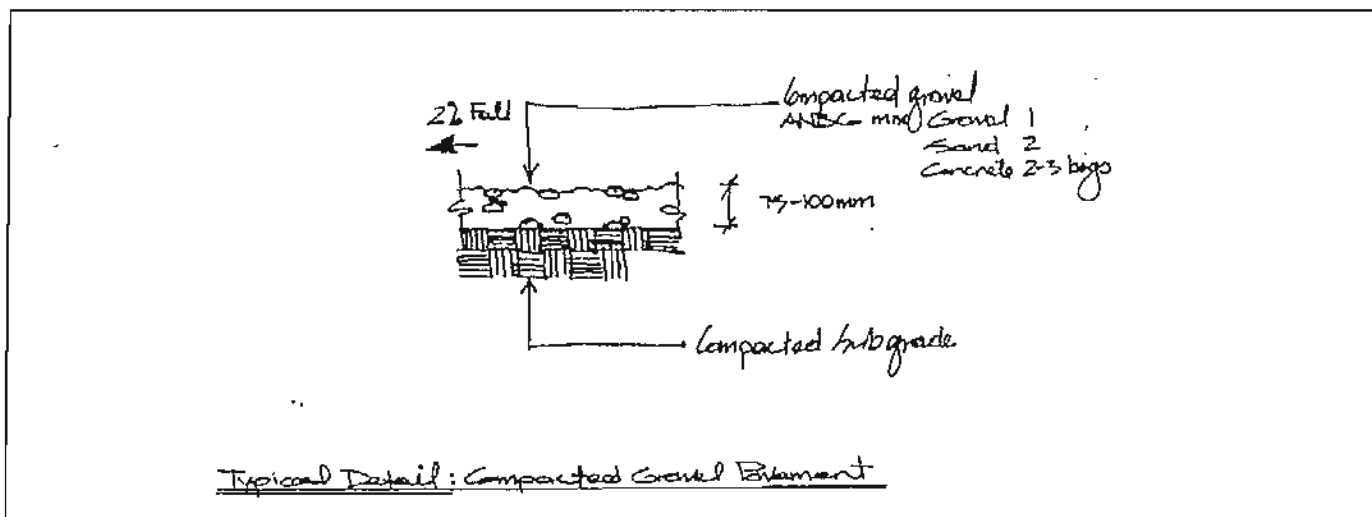 2% Fall
Compacted gravel
ANBG mix Gravel 1
Sand 2
Concrete 2-3 bags
75-100mm
Compacted subgrade
Typical Detail: Compacted Gravel Pavement